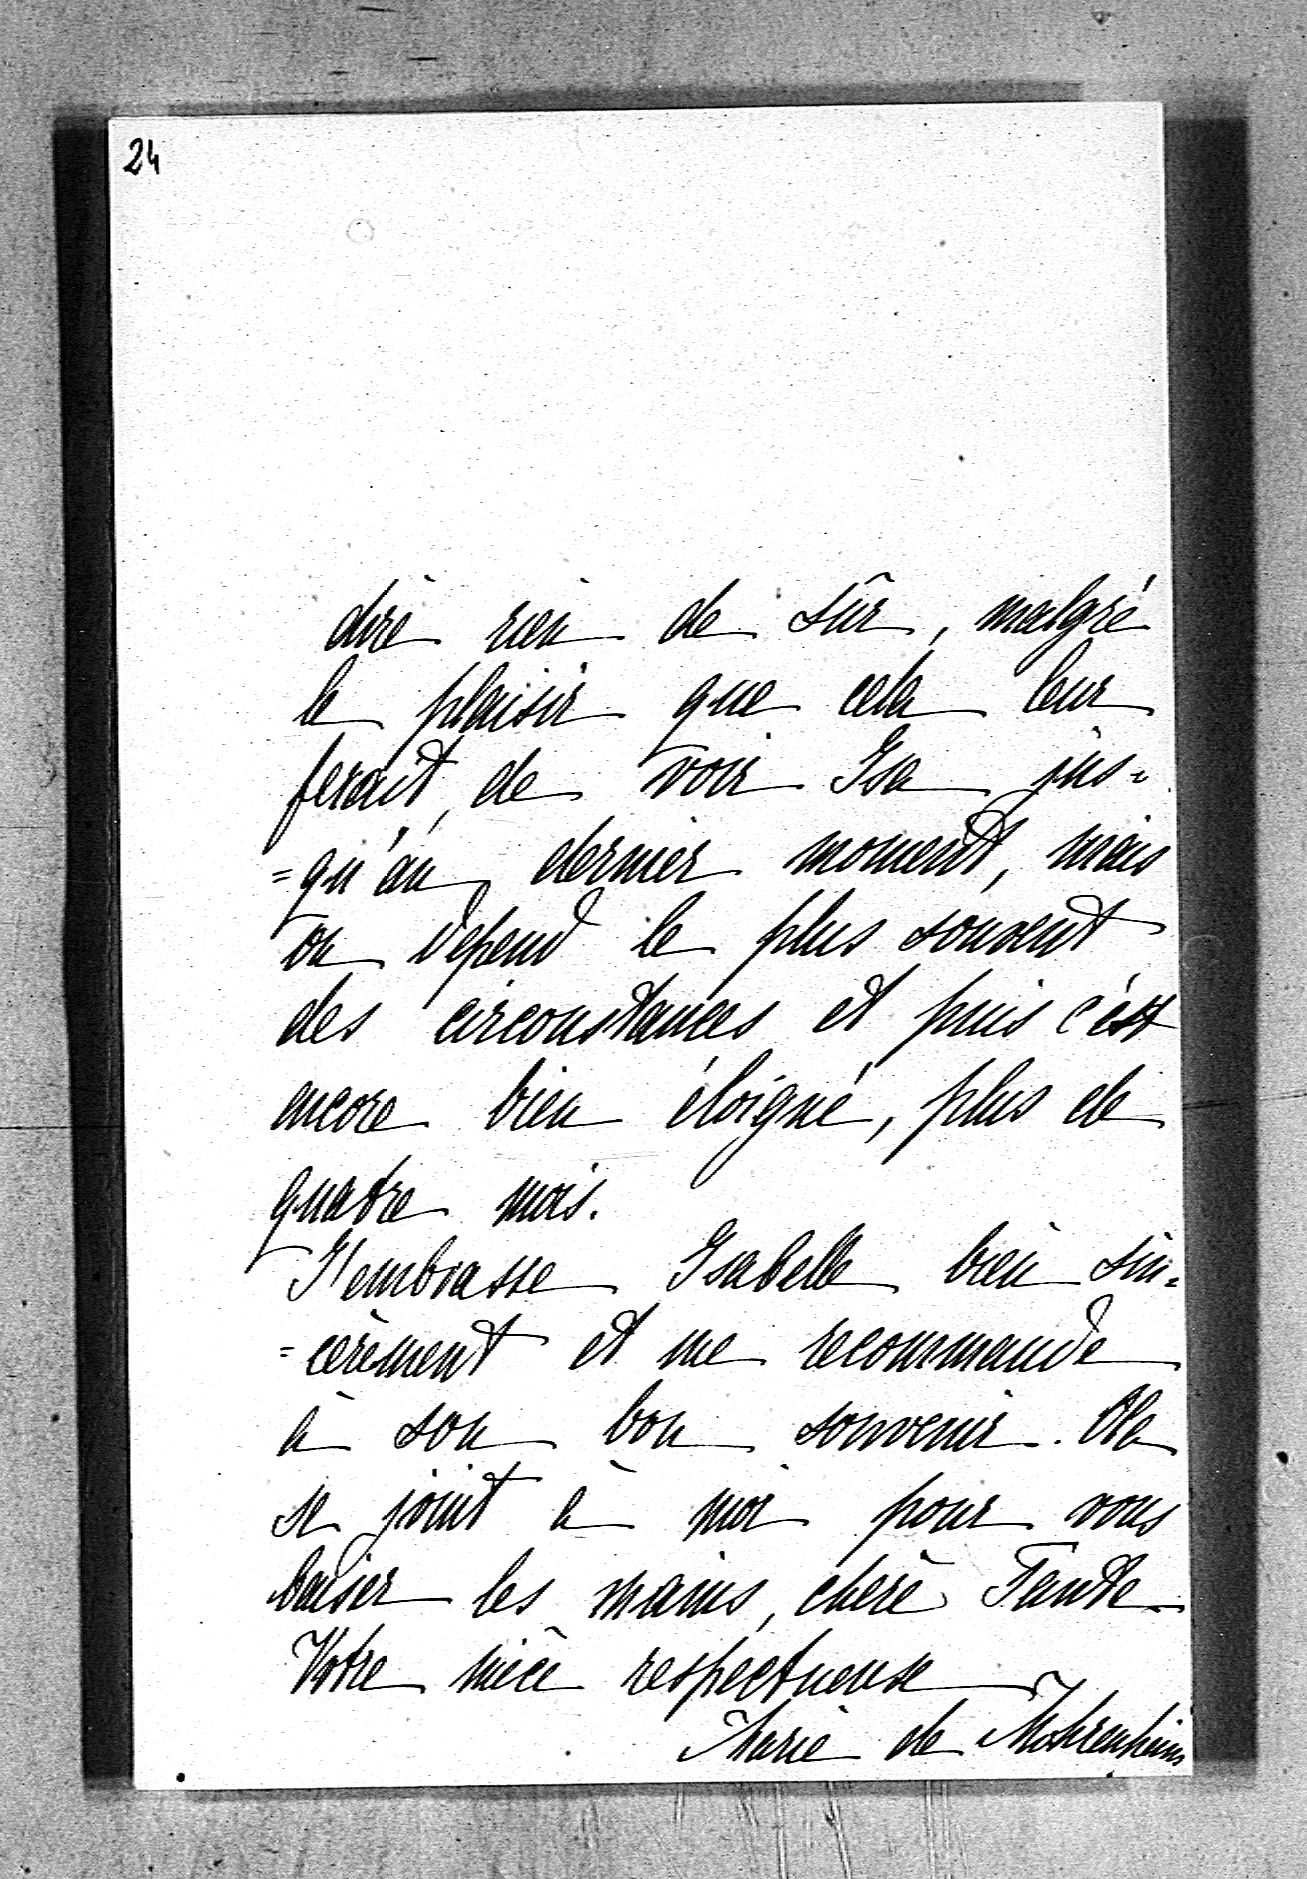 24
dire rien de sûr, malgré
le plaisir que cela leur
ferait, de voir Isa jus=
=qu'au dernier moment, mais
on dépend le plus souvent
des circonstances et puis c'est
encore bien éloigné, plus de
quatre mois.
J'embrasse Isabelle bien sin=
=cèrement et me recommande
à son bon souvenir. Ola
se joint à moi pour vous
baiser les mains, chère Tante
Votre nièce respectueuse
Marie de Mohrenheim